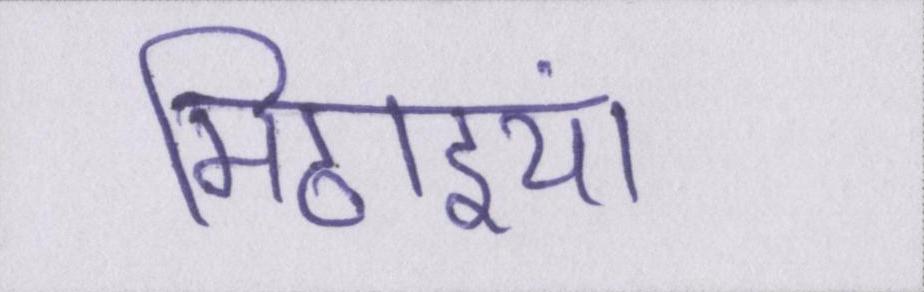 मिठाइयां